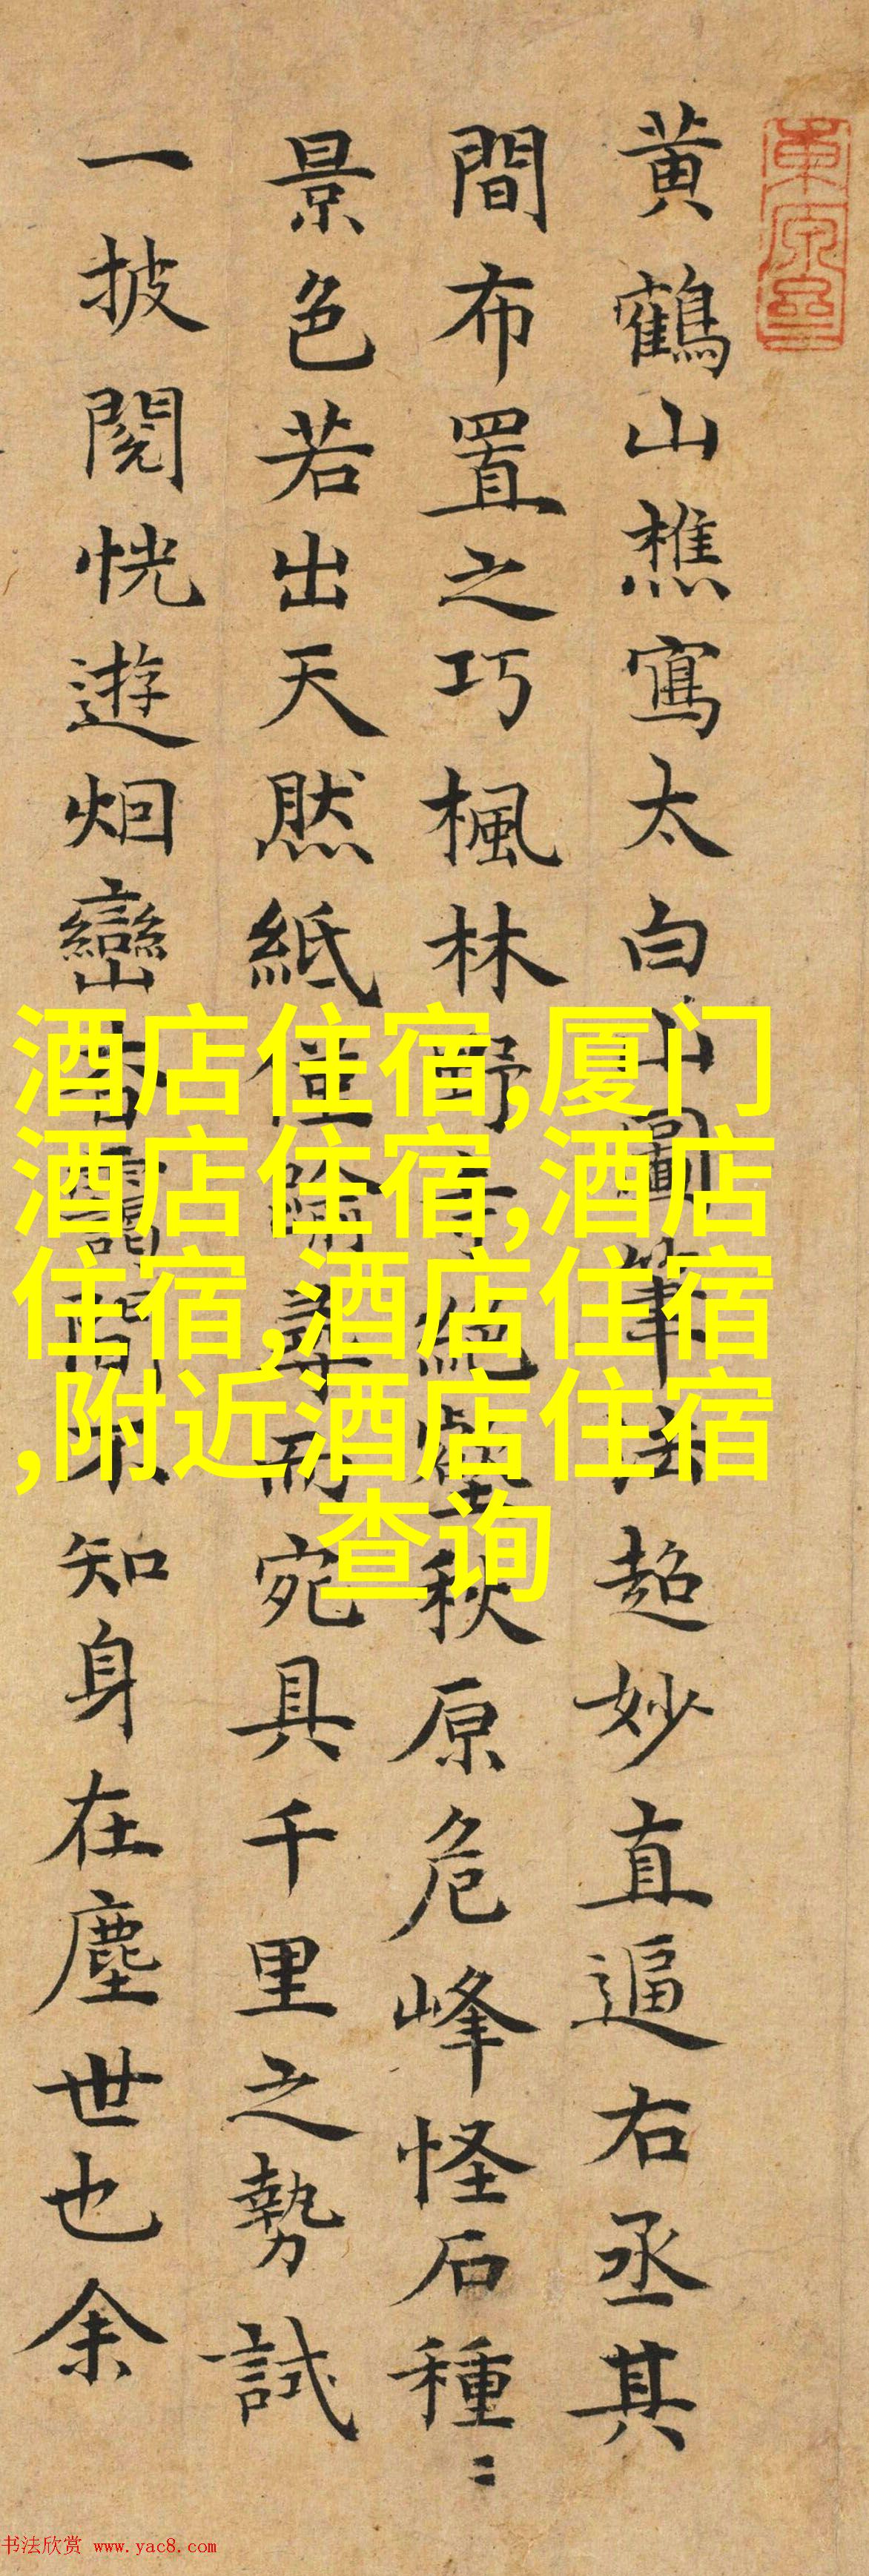 黄鶴山樵寫太白山圖筆法超妙直逼右丞其
間布置之巧楓林野寺絕壑秋原危峰怪石種〻
景色若出天然紙僅踰尋而宛具千里之勢試
一披閱恍遊烟巒杳靄間不知身在塵世也余
酒店住宿,厦门
酒店住宿,酒店
住宿,酒店住宿
,附近酒店住宿
查询
书法欣赏 www.yac8.com